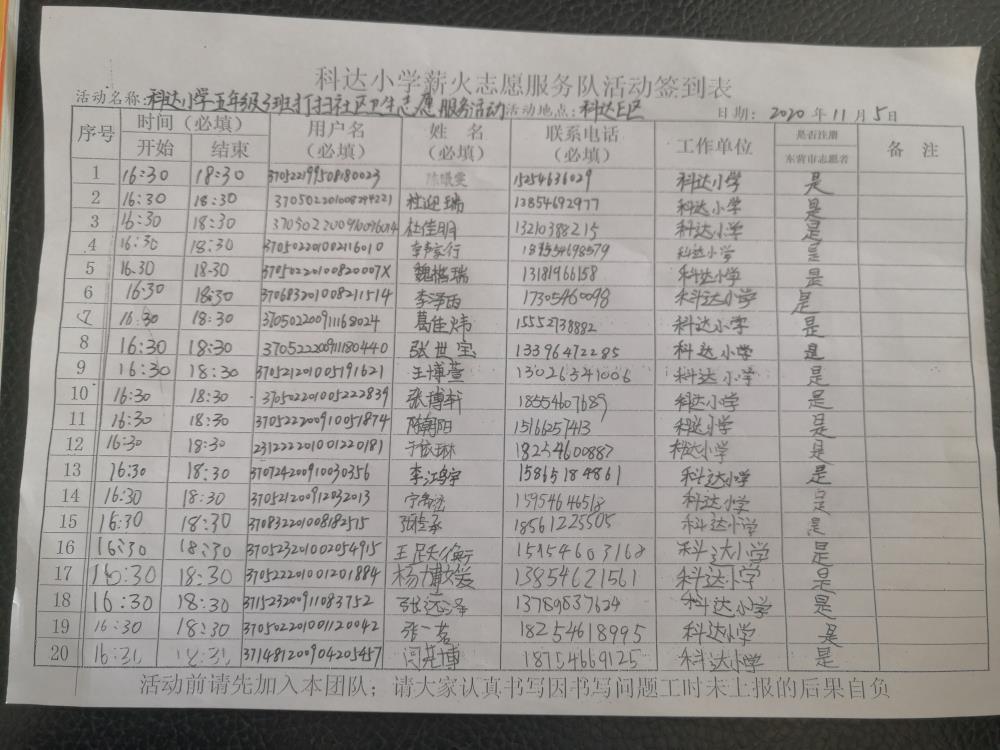 科达小学薪火志愿服务队活动签到表
活动名称:科达小学五年级3班打扫社区卫生志愿服务活动 活动地点:科达E区 日期: 2020 年 11 月 5 日
序号 时间(必填) 用户名 姓 名 联系电话 工作单位 是否注册 备 注
开始 结束 (必填) (必填) (必填) 东营市志愿者
1 16:30 18:30 370522199508180023 15254636029 科达小学 是
2 16:30 18:30 杜迎瑞 13854692977 科达小学 是
3 16:30 18:30 杜佳明 13210388215 科达小学 是
4 16:30 18:30 370502201002116010 18954698579 科达小学 是
5 16.30 18.30 37050220100820007X 魏梧瑞 13181966158 科达小学 是
6 16:30 18:30 370683201008211514 李泽雨 17305460098 科达小学 是
7 16:30 18:30 370502200911168024 葛佳炜 15552738882 科达小学 是
8 16:30 18:30 370522200911180440 张世宝 13396472285 科达小学 是
9 16:30 18:30 370521201005191621 王博萱 13026541006 科达小学 是
10 16:30 18:30 370502201005222839 张博轩 18554607689 科达小学 是
11 16:30 18:30 370522200910051874 陈朝阳 15166257413 科达小学 是
12 16:30 18:30 231222201001220181 于依琳 18254600887 科达小学 是
13 16:30 18:30 370724200910030356 15865184861 科达小学 是
14 16:30 18:30 370521200912032013 15954646518 科达小学 是
15 16:30 18:30 370832201008182515 18561225505 科达小学 是
16 16:30 18:30 370523201002054915 15154603168 科达小学 是
17 16:30 18:30 370522201001201884 杨博媛 13854621561 科达小学 是
18 16:30 18:30 371523200911083752 张远泽 13789837624 科达小学 是
19 16:30 18:30 370502201001120042 张一茗 18254618995 科达小学 是
20 16:30 18:30 371481200904205457 闫芫博 18754669125 科达小学 是
活动前请先加入本团队；请大家认真书写因书写问题工时未上报的后果自负